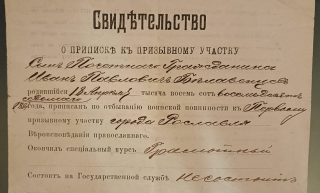 Свидѣтельство
О ПРИПИСКѢ КЪ ПРИЗЫВНОМУ УЧАСТКУ
Сынъ Почотнаго Гражданина
Иванъ Павловичъ
родившійся 12 Апрѣля тысяча восемь сотъ восемьдесятъ
года, приписанъ по отбыванію воинской повинности къ Первому
призывному участку города Рославля
Вѣроисповѣданія православнаго.
Окончилъ спеціальный курсъ Грамотный
Состоитъ на Государственной службѣ не состоитъ